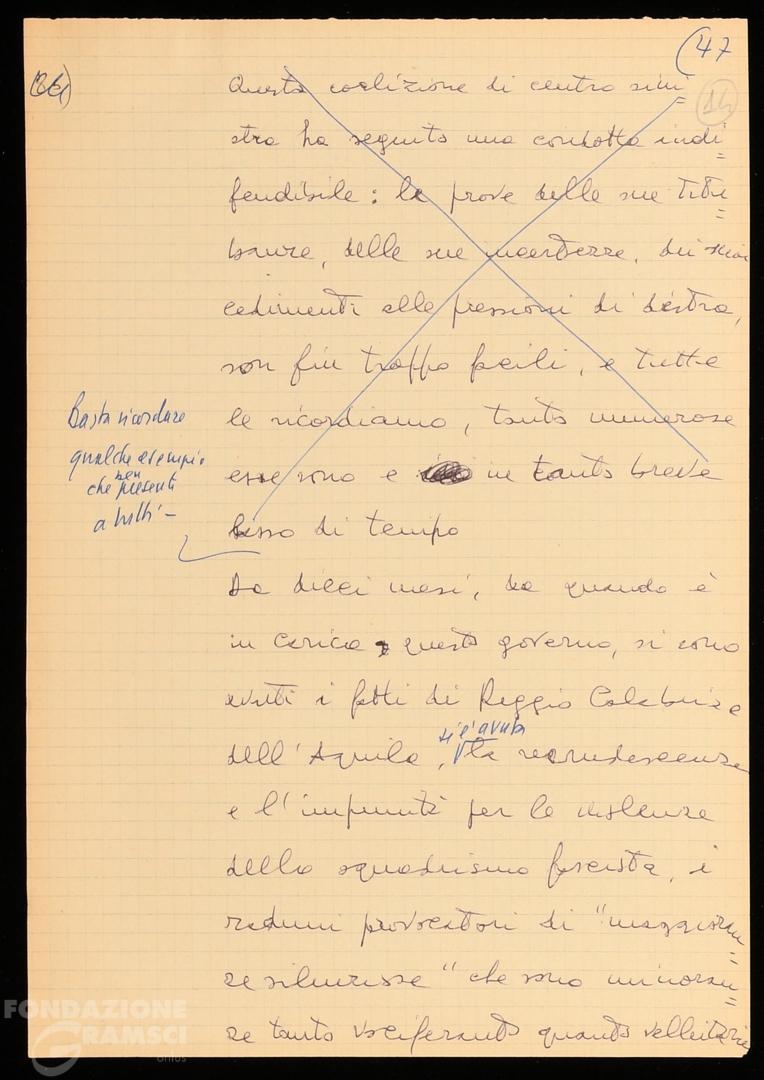 (47
36)
14
Questa coalizione di centro sini=
stra ha seguito una condotta indi=
fendibile: le prove delle sue titu=
banze, delle sue incertezze, dei suoi
cedimenti alle pressioni di destra,
son fin troppo facili, e tutte
le ricordiamo, tanto numerose
esse sono e in tanto breve
lasso di tempo
Basta ricordare
qualche esempio
ben
che presenti
a tutti –
Da dieci mesi, da quando è
in carica questo governo, si sono
avuti i fatti di Reggio Calabria e
si è avuta
dell'Aquila, la recrudescenza
e l'impunità per le violenze
dello squadrismo fascista, i
raduni provocatori di "maggioran=
ze silenziose" che sono minoran=
ze tanto vociferanti quanto velleitarie
FONDAZIONE
GRAMSCI
onlus